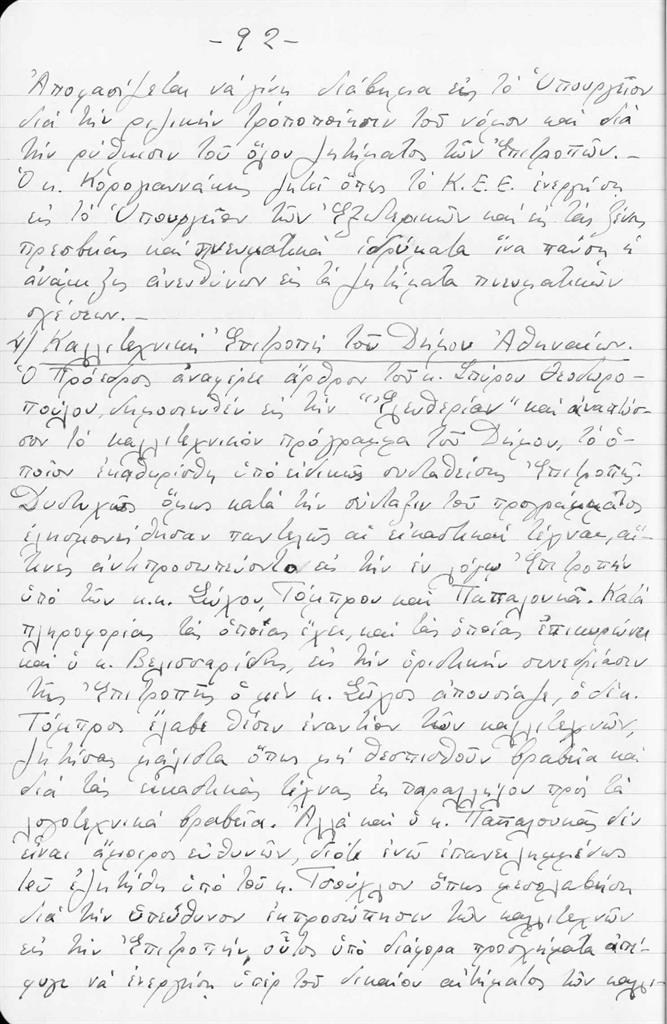 - 92 -
Ἀποφασίζεται νὰ γίνῃ διάβημα εἰς τὸ Ὑπουργεῖον
διὰ τὴν ριζικὴν τροποποίησιν τοῦ νόμου καὶ διὰ
τὴν ρύθμισιν τοῦ ὅλου ζητήματος τῶν Ἐπιτροπῶν. –
Ὁ κ. Κορογιαννάκης ζητεῖ ὅπως τὸ Κ.Ε.Ε. ἐνεργήσῃ
εἰς τὸ Ὑπουργεῖον τῶν Ἐξωτερικῶν καὶ εἰς τὰς ξένας
πρεσβείας καὶ πνευματικὰ ἱδρύματα ἵνα παύσῃ ἡ
ἀνάμιξις ἀνευθύνων εἰς τὰ ζητήματα πνευματικῶν
σχέσεων. –
Καλλιτεχνικὴ Ἐπιτροπὴ τοῦ Δήμου Ἀθηναίων.
Ὁ Πρόεδρος ἀναφέρει ἄρθρον τοῦ κ. Σπύρου Θεοδωρο-
πούλου, δημοσιευθὲν εἰς τὴν "Ἐλευθερίαν" καὶ ἀναπτύσ-
σον τὸ καλλιτεχνικὸν πρόγραμμα τοῦ Δήμου, τὸ ὁ-
ποῖον ἐκαθωρίσθη ὑπὸ εἰδικῶς συσταθείσης Ἐπιτροπῆς.
Δυστυχῶς ὅμως κατὰ τὴν σύνταξιν τοῦ προγράμματος
ἐλησμονήθησαν παντελῶς αἱ εἰκαστικαὶ τέχναι, αἵ-
τινες ἀντιπροσωπεύοντο εἰς τὴν ἐν λόγῳ Ἐπιτροπὴν
ὑπὸ τῶν κ.κ. Σώχου, Τόμπρου καὶ Παπαλουκᾶ. Κατὰ
πληροφορίας τὰς ὁποίας ἔχει, καὶ τὰς ὁποίας ἐπικυρώνει
καὶ ὁ κ. Βελισσαρίδης, εἰς τὴν ὁριστικὴν συνεδρίασιν
τῆς Ἐπιτροπῆς ὁ μὲν κ. Σῶχος ἀπουσίαζε, ὁ δὲ κ.
Τόμπρος ἔλαβε θέσιν ἐναντίον τῶν καλλιτεχνῶν,
ζητήσας μάλιστα ὅπως μὴ θεσπισθοῦν βραβεῖα καὶ
διὰ τὰς εἰκαστικὰς τέχνας ἐκ παραλλήλου πρὸς τὰ
λογοτεχνικὰ βραβεῖα. Ἀλλὰ καὶ ὁ κ. Παπαλουκᾶς δὲν
εἶναι ἄμοιρος εὐθυνῶν, διότι ἐνῷ ἐπανειλημμένως
τοῦ ἐζητήθη ὑπὸ τοῦ κ. Τσούχλου ὅπως μεσολαβήσῃ
διὰ τὴν ὑπεύθυνον ἐκπροσώπησιν τῶν καλλιτεχνῶν
εἰς τὴν Ἐπιτροπήν, οὗτος ὑπὸ διάφορα προσχήματα ἀπέ-
φυγε νὰ ἐνεργήσῃ ὑπὲρ τοῦ δικαίου αἰτήματος τῶν καλλι-